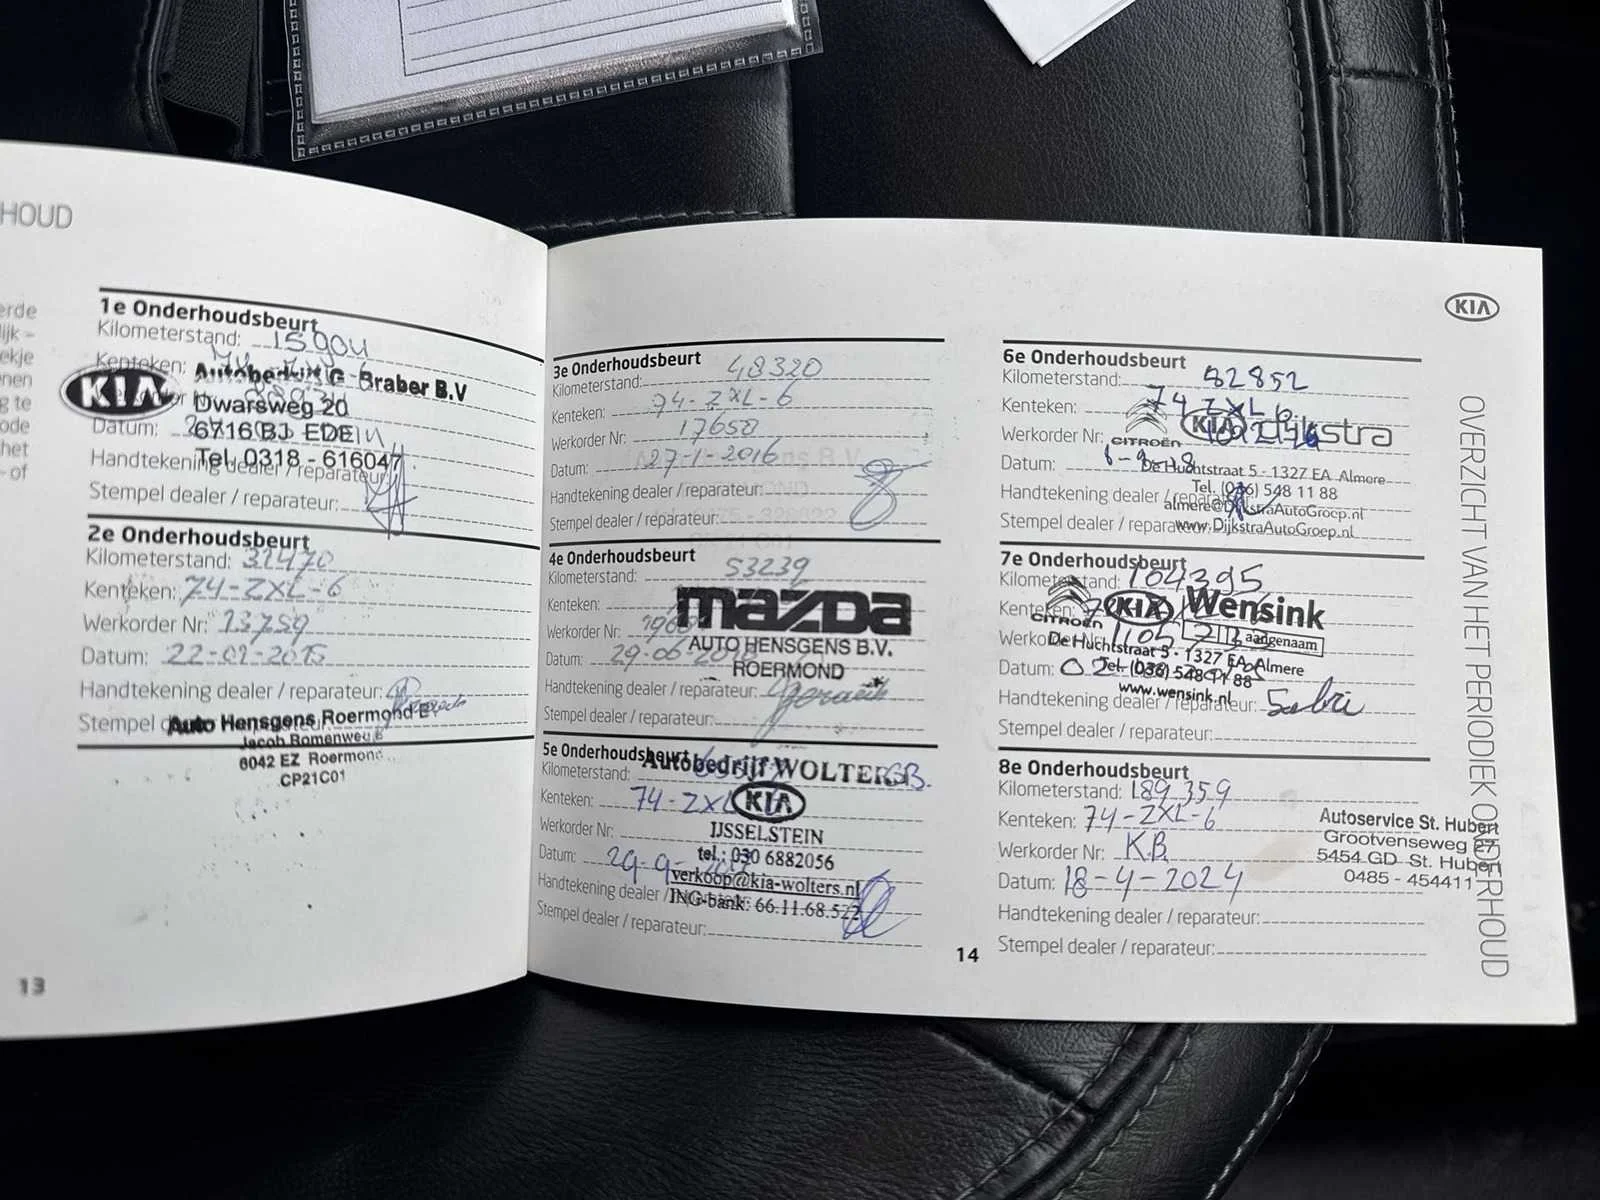 HOUD
erde
lijk -
ekje
nen
g te
ode
het
- of
1e Onderhoudsbeurt
Kilometerstand: 15904
Kenteken:
KIA
Autobedrijf G. Braber B.V
Dwarsweg 20
Datum:
6716 BJ EDE
Tel. 0318 - 616047
Handtekening dealer / reparateur:
Stempel dealer / reparateur:
2e Onderhoudsbeurt
Kilometerstand: 32470
Kenteken: 74-ZXL-6
Werkorder Nr: 13759
Datum: 22-01-2015
Handtekening dealer / reparateur:
Stempel dealer / reparateur:
Auto Hensgens Roermond
6042 EZ Roermond
CP21C01
13
3e Onderhoudsbeurt
Kilometerstand: 48320
Kenteken: 74-ZXL-6
Werkorder Nr: 17650
Datum: 27-1-2016
Handtekening dealer / reparateur:
Stempel dealer / reparateur:
4e Onderhoudsbeurt
Kilometerstand: 53239
Kenteken:
mazda
Werkorder Nr:
AUTO HENSGENS B.V.
Datum: 29-06-
ROERMOND
Handtekening dealer / reparateur:
Stempel dealer / reparateur:
5e Onderhoudsbeurt
Autobedrijf WOLTERS
Kilometerstand:
Kenteken: 74-ZXL
KIA
Werkorder Nr:
IJSSELSTEIN
tel.: 030 6882056
Datum: 29-9-
verkoop@kia-wolters.nl
Handtekening dealer /
ING-bank: 66.11.68.522
Stempel dealer / reparateur:
14
KIA
6e Onderhoudsbeurt
Kilometerstand: 82852
Kenteken: 74 ZXL 6
Werkorder Nr:
CITROËN KIA Dijkstra
Datum:
De Huchtstraat 5 - 1327 EA Almere
Tel. (036) 548 11 88
Handtekening dealer / reparateur:
almere@DijkstraAutoGroep.nl
Stempel dealer / reparateur:
www.DijkstraAutoGroep.nl
7e Onderhoudsbeurt
Kilometerstand: 104395
Kenteken:
CITROËN KIA Wensink
aadgenaam
De Huchtstraat 5 - 1327 EA Almere
Datum:
Tel. (036) 548 11 88
www.wensink.nl
Handtekening dealer / reparateur:
Stempel dealer / reparateur:
8e Onderhoudsbeurt
Kilometerstand: 189359
Kenteken: 74-ZXL-6
Werkorder Nr: K.B.
Datum: 18-4-2024
Handtekening dealer / reparateur:
Stempel dealer / reparateur:
Autoservice St. Hubert
Grootvenseweg 27
5454 GD St. Hubert
0485 - 454411
OVERZICHT VAN HET PERIODIEK ONDERHOUD